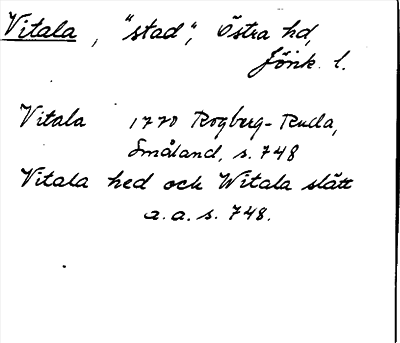 Vitala, "stad", Östra hd,
Jönk. l.
Vitala 1770 Rogberg-Ruda,
Småland, s. 748
Vitala hed och Witala slätt
a. a. s. 748.